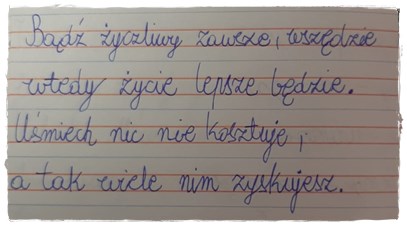 Bądź życzliwy zawsze, wszędzie
wtedy życie lepsze będzie.
Uśmiech nic nie kosztuje,
a tak wiele nim zyskujesz.